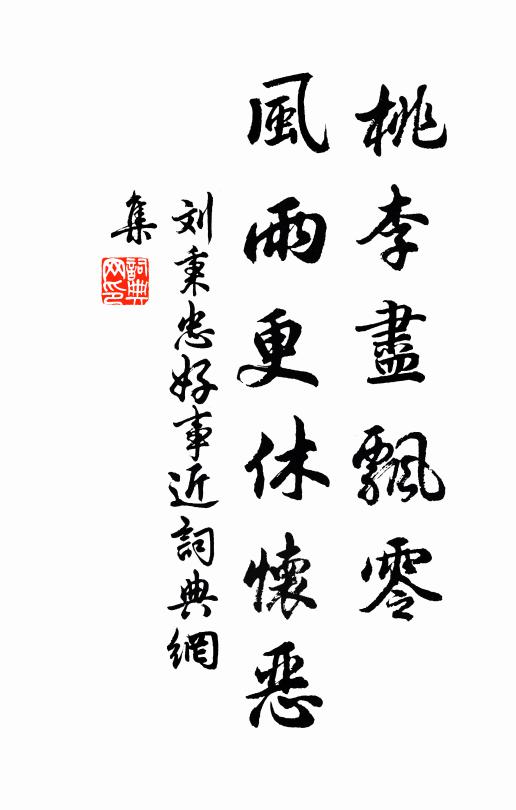 桃李盡飄零
風雨更休懷惡
刘秉忠好事近詞典網
集
詞典
网印